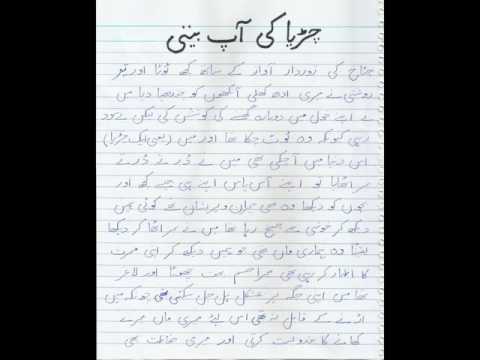 چڑیا کی آپ بیتی
چٹاخ کی زوردار آواز کے ساتھ کچھ ٹوٹا اور تیز
روشنی نے میری ادھ کھلی آنکھوں کو چندھیا دیا میں
نے اپنے خول میں دوبارہ گھسنے کی کوشش کی لیکن بےسود
رہی کیونکہ وہ ٹوٹ چکا تھا اور میں (یعنی ایک چڑیا)
اس دنیا میں آچکی تھی میں نے ڈرتے ڈرتے
سر اٹھایا تو اپنے آس پاس اپنے ہی جیسے کچھ اور
بچوں کو دیکھا وہ بھی حیران و پریشان تھے کوئی ہمیں
دیکھ کر خوشی سے چیخ رہا تھا میں نے سر اٹھا کر دیکھا
یقینا وہ ہماری ماں تھی جو ہمیں دیکھ کر اپنی مسرت
کا اظہار کر رہی تھی میرا جسم بہت چھوٹا اور لاغر
تھا میں اپنی جگہ پر بمشکل ہل جل سکتی تھی چونکہ میں
اڑنے کے قابل نہ تھی اس لیئے میری ماں میرے
کھانے کا بندوبست کرتی اور میری حفاظت بھی